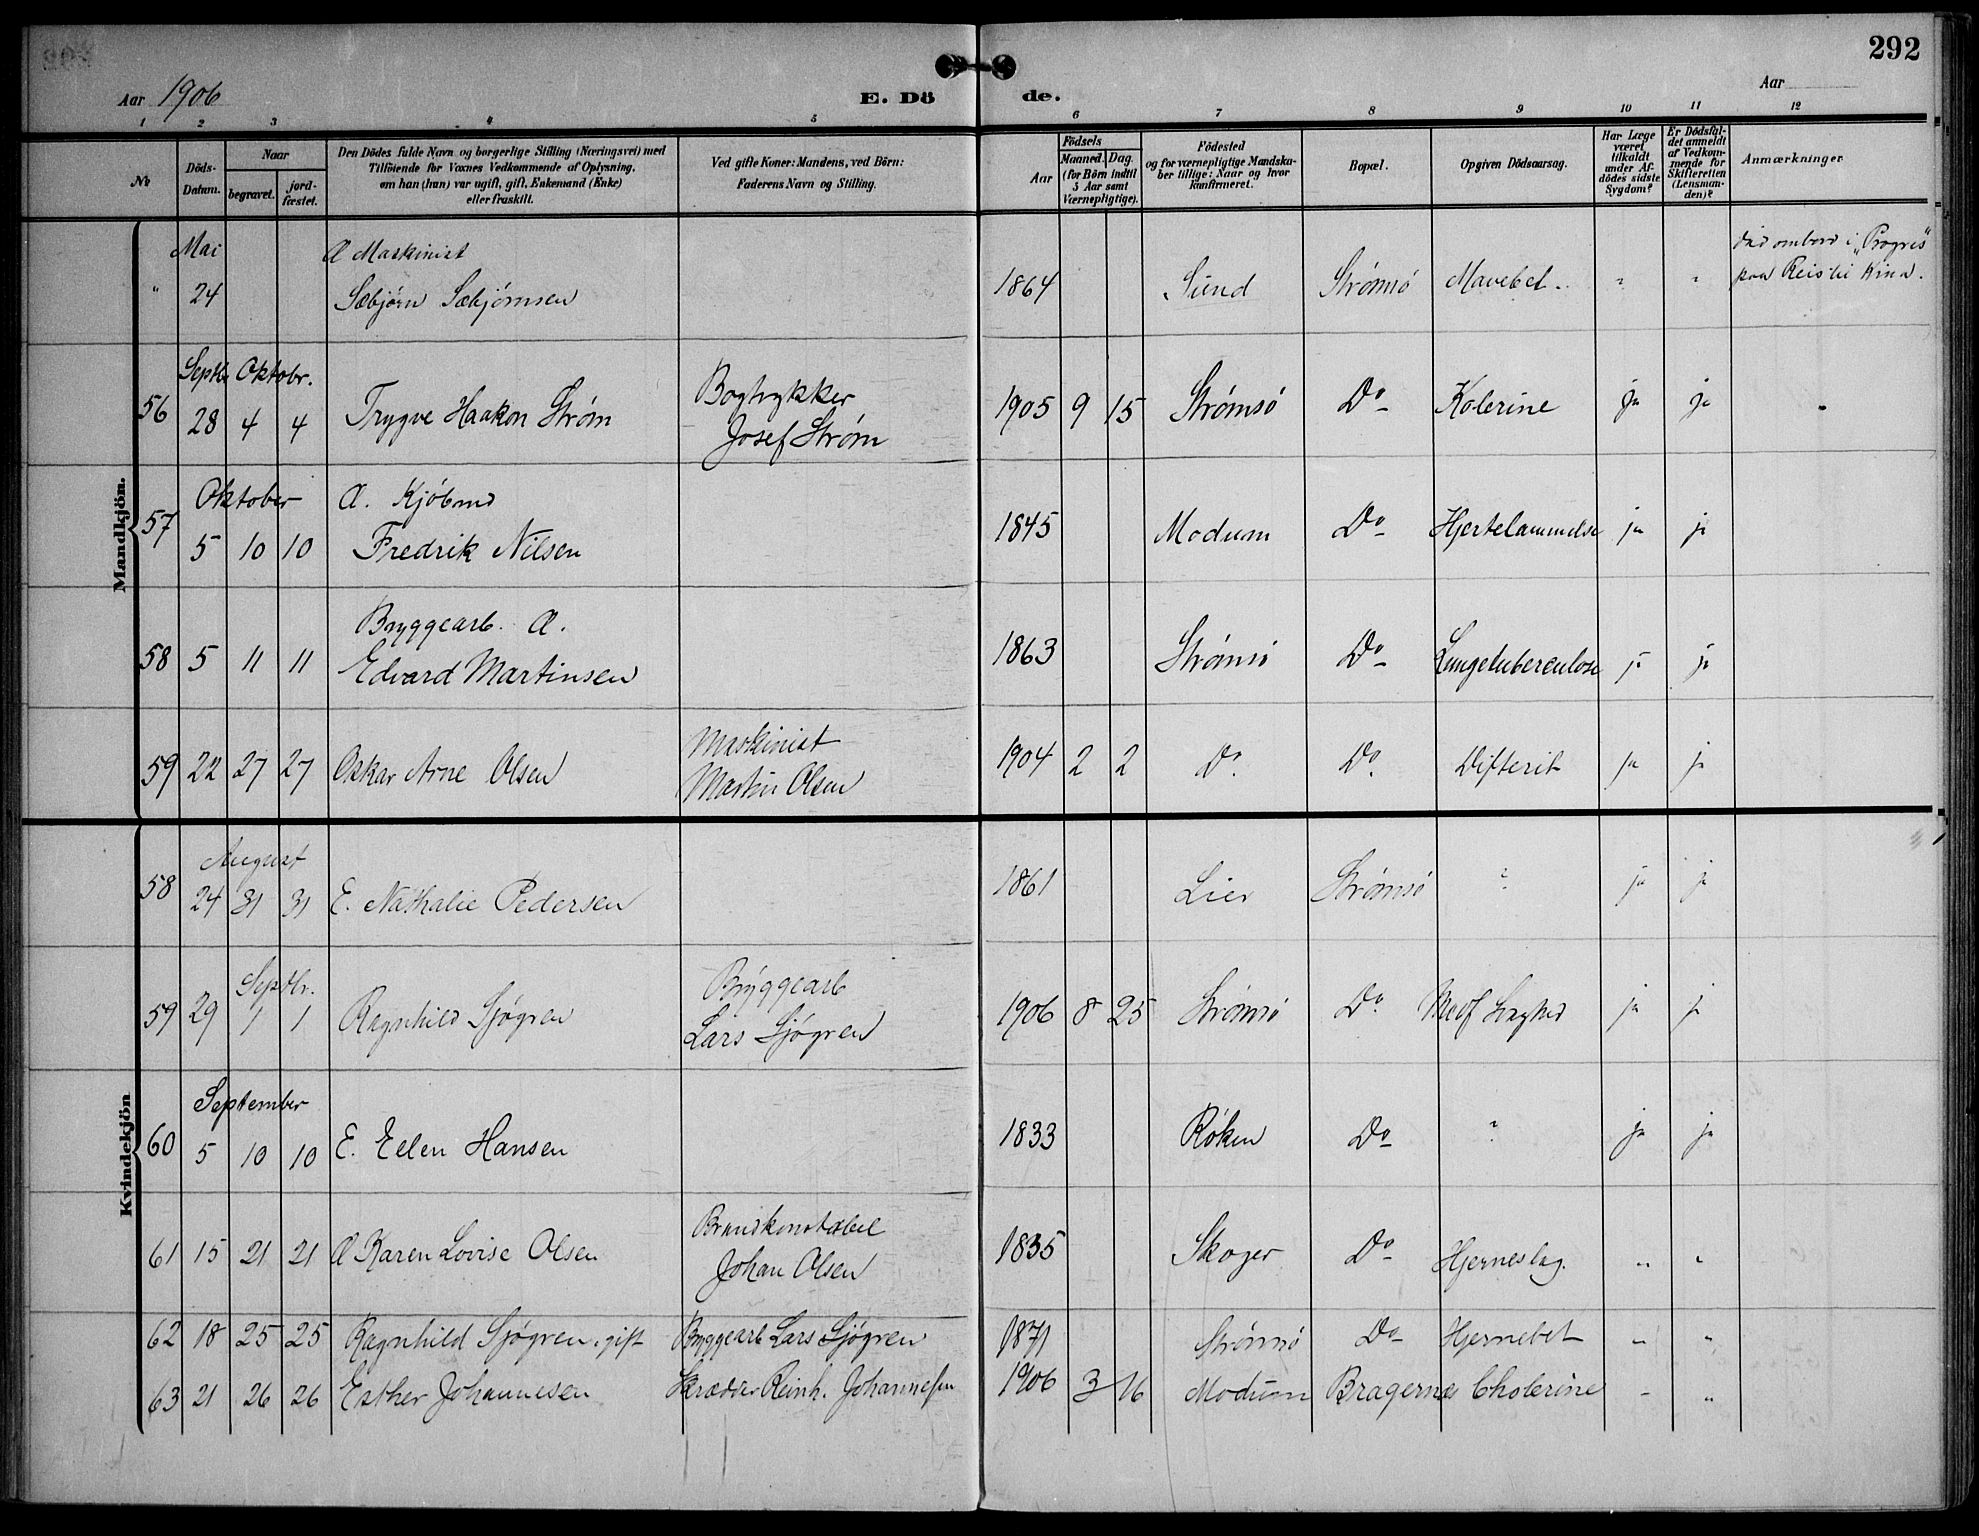 292
Aar 1906
E. Dö
de.
Aar
1 2 3 4 5 6 7 8 9 10 11 12
No
Döds-
Datum.
Naar
begravet.
jord-
fæstet.
Den Dödes fulde Navn og borgerlige Stilling (Næringsvei) med
Tilföiende for Voxnes Vedkommende af Oplysning,
om han (hun) var ugift, gift, Enkemand (Enke)
eller fraskilt.
Ved gifte Koner: Mandens, ved Börn:
Faderens Navn og Stilling.
Födsels
Aar
Maaned. Dag.
(for Börn indtil
5 Aar samt
Værnepligtige).
Födested
og for værnepligtige Mandska-
ber tillige: Naar og hvor
konfirmeret.
Bopæl.
Opgiven Dödsaarsag.
Har Læge
været
tilkaldt
under Af-
dödes sidste
Sygdom?
Er Dödsfal-
det anmeldt
af Vedkom-
mende for
Skifteretten
(Lensman-
den)?
Anmærkninger
Mandkjön.
Mai Æ Maskinist død ombord i "Progres"
" 24 Sæbjørn Sæbjørnsen 1864 Sund Strømsö Mavebet. " " paa Reis til Kina.
Septbr Oktobr. Bogtrykker
56 28 4 4 Trygve Haakon Strøm Josef Strøm 1905 9 15 Strømsö Do Kolerine ja ja
Oktober Æ. Kjöbmd
57 5 10 10 Fredrik Nilsen 1845 Modum Do Hjertelammelse ja ja
Bryggearb. Æ.
58 5 11 11 Edvard Martinsen 1863 Strømsö Do Lungetuberculose ja ja
Maskinist
59 22 27 27 Oskar Arne Olsen Martin Olsen 1904 2 2 Do. Do. Difterit ja ja
Kvindekjön
August
58 24 31 31 E. Nathalie Pedersen 1861 Lier Strømsö ? ja ja
Septbr. Bryggearb
59 29 1 1 Ragnhild Sjøgren Lars Sjøgren 1906 8 25 Strømsö Do. Medf Svaghed ja ja
September
60 5 10 10 E. Ellen Hansen 1833 Røken Do ? ja ja
Brandkonstabel
61 15 21 21 Æ Karen Lovise Olsen Johan Olsen 1835 Skoger Do Hjerneslag. " "
62 18 25 25 Ragnhild Sjøgren, gift Bryggearb Lars Sjøgren 1871 Strømsö Do Hjernebet " "
63 21 26 26 Esther Johannesen Skrædder Reinh. Johannesen 1906 3 16 Modum Bragernæs Cholerine " "